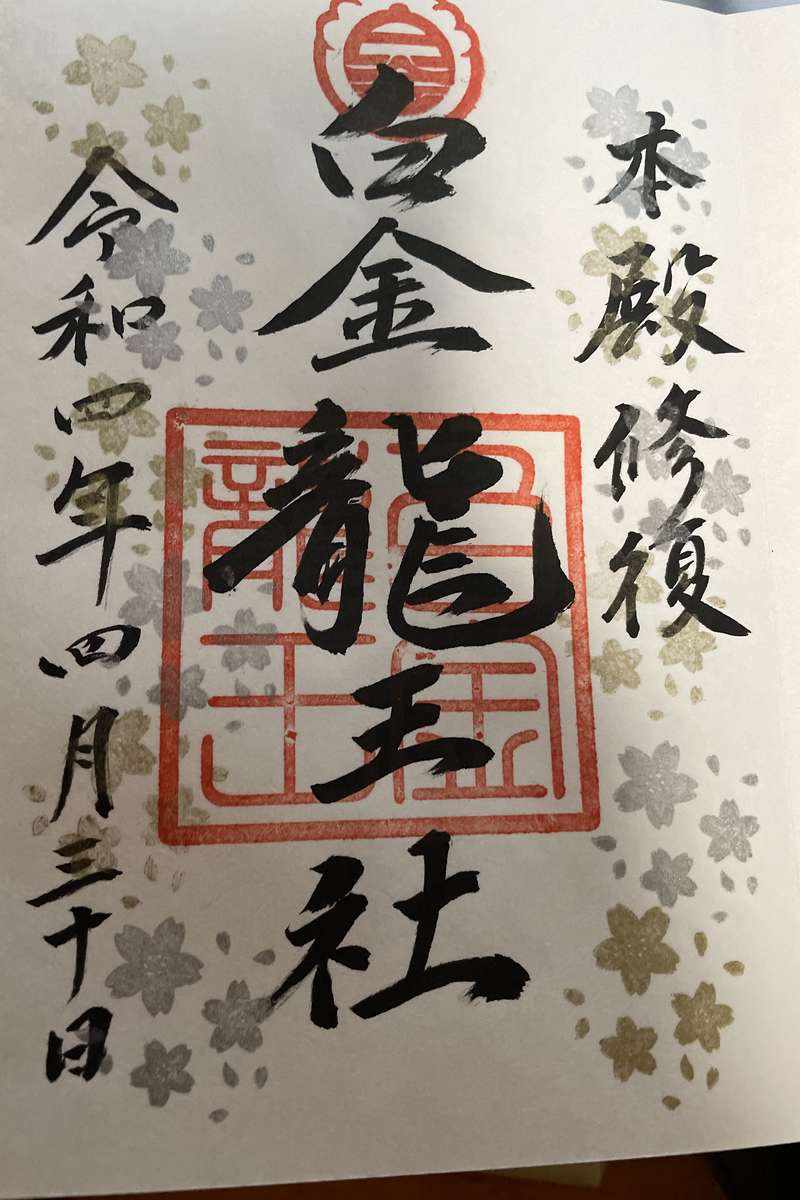 本殿修復
白金龍王社
白金
龍王
令和四年四月三十日